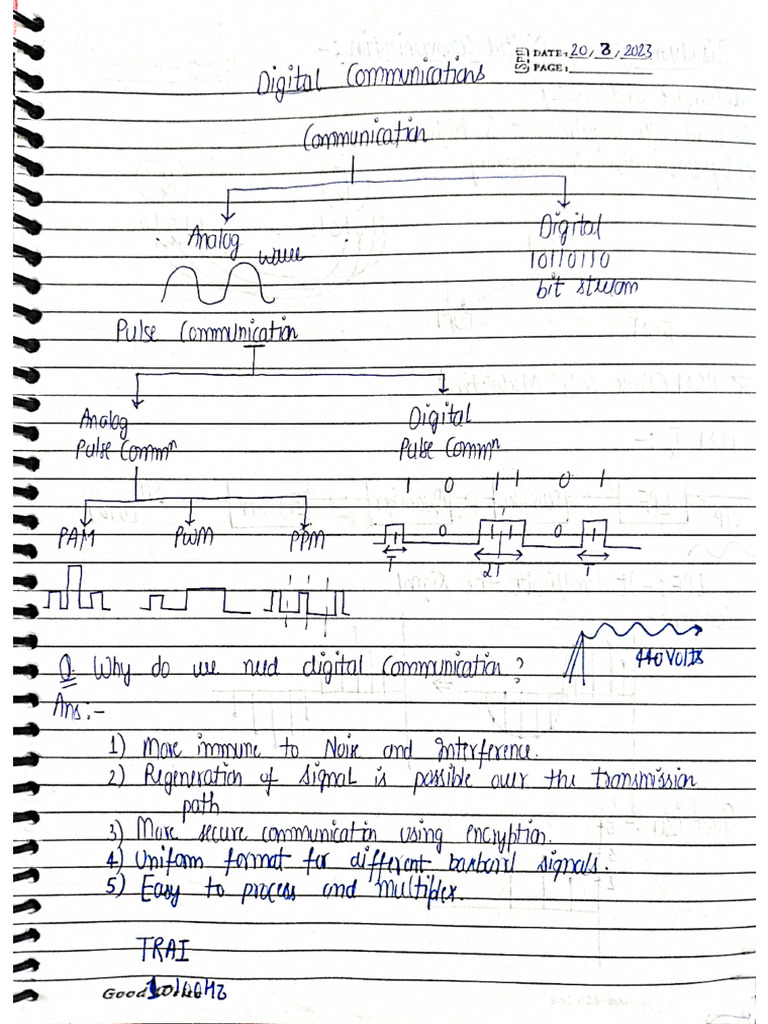 DATE: 20/3/2023
PAGE:
Digital Communications
Communication
Analog
Digital
wave
10110110
bit stream
Pulse Communication
Analog
Pulse Commⁿ
Digital
Pulse Commⁿ
1 0 1 1 0 1
PAM PWM PPM
1 0 1 1 0 1
T 2T T
440 Volts
Q. Why do we need digital Communication?
Ans:-
1) More immune to Noise and Interference.
2) Regeneration of signal is possible over the transmission
path
3) More secure communication using encryption.
4) Uniform format for different basband signals.
5) Easy to process and multiplex.
TRAI
Good